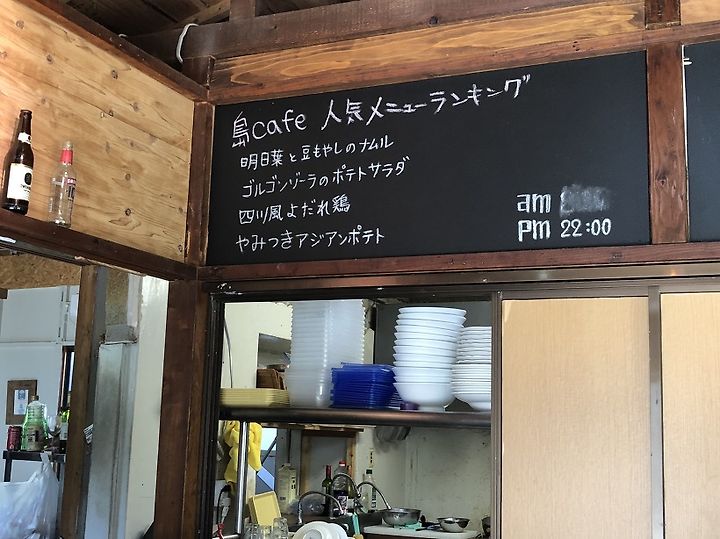 島cafe 人気メニューランキング
明日葉と豆もやしのナムル
ゴルゴンゾーラのポテトサラダ
四川風よだれ鶏
やみつきアジアンポテト
am
pm 22:00